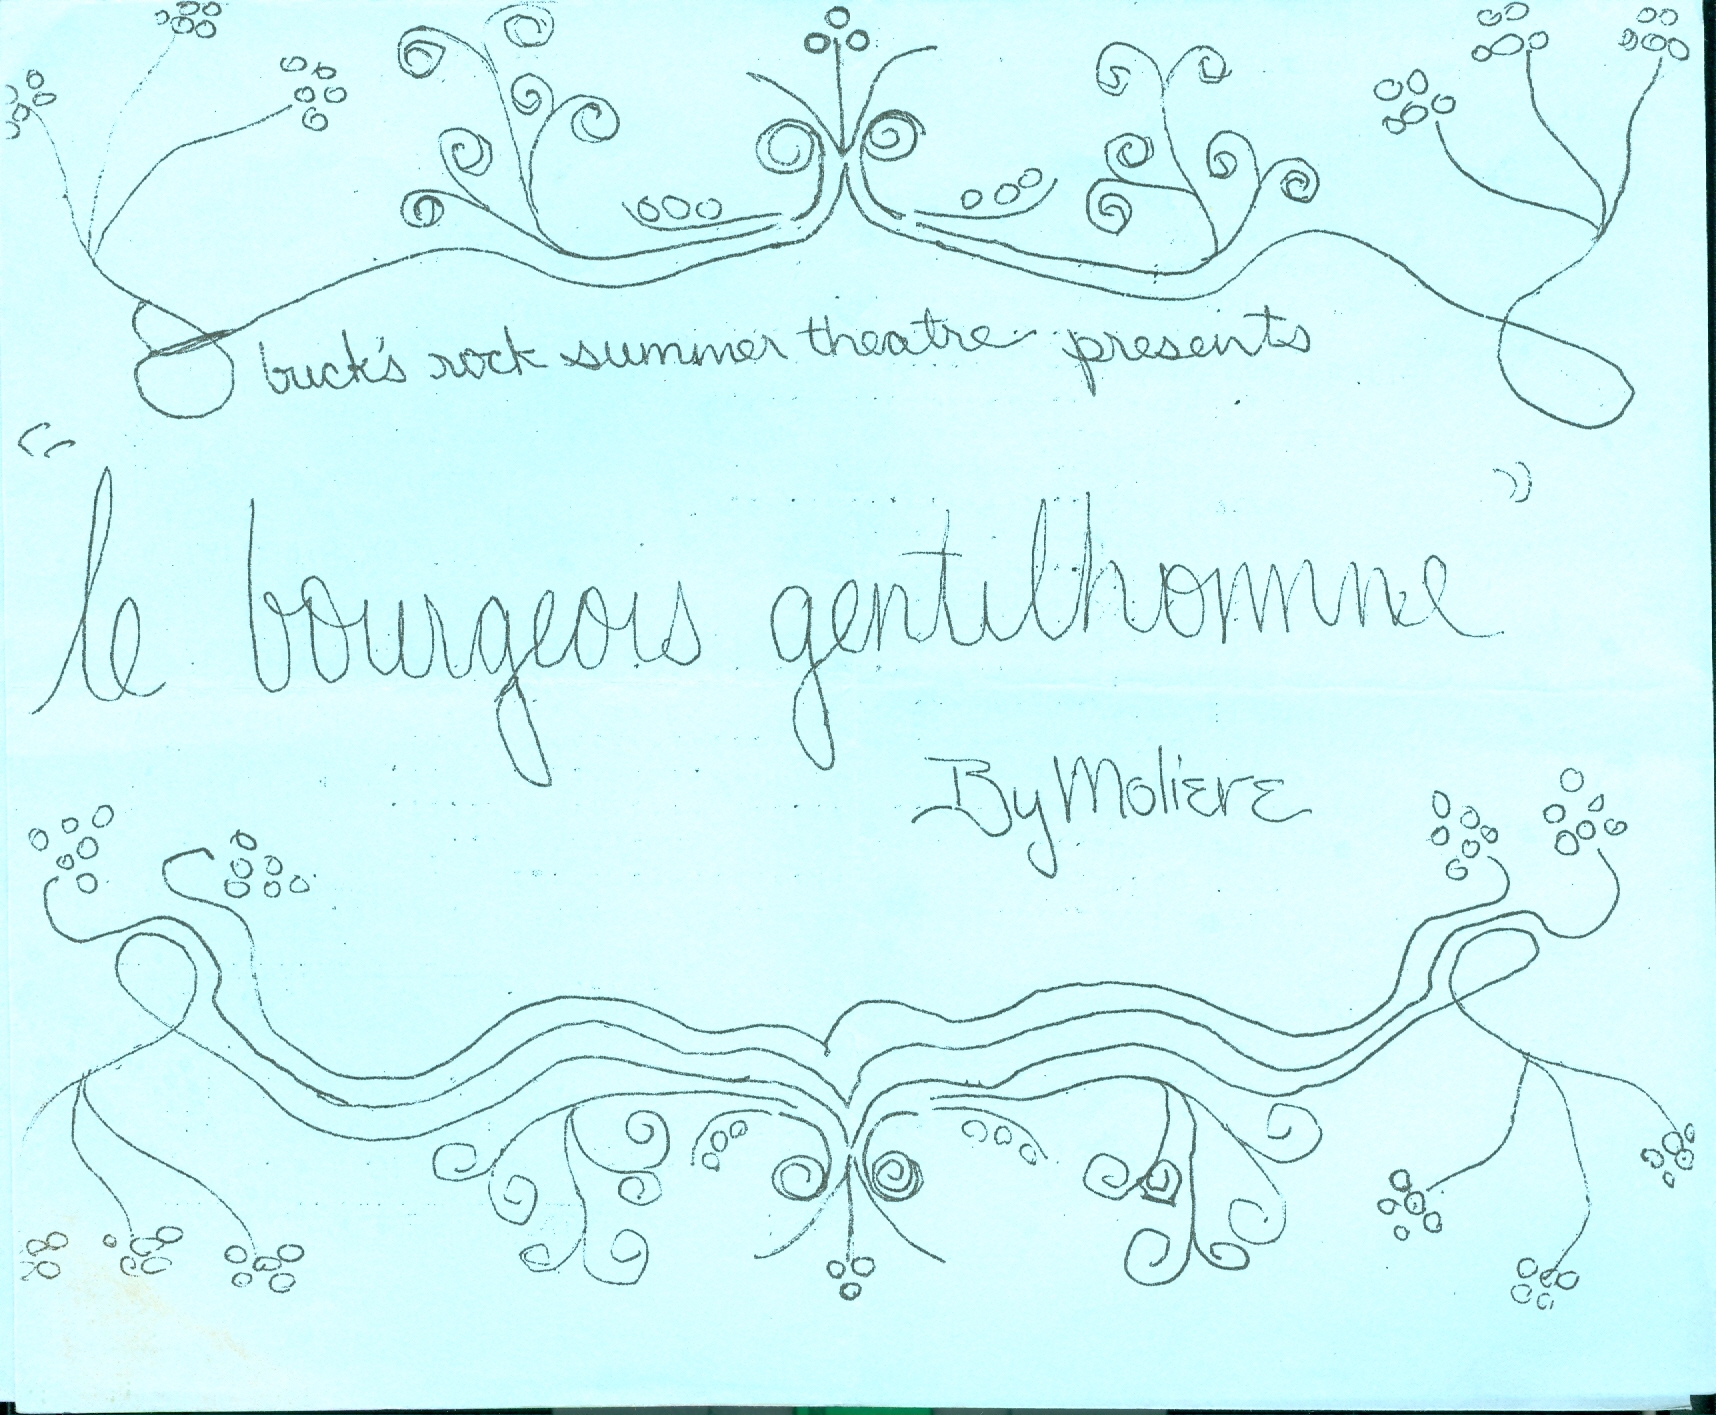 buck's rock summer theatre presents
"le bourgeois gentilhomme"
By Moliere